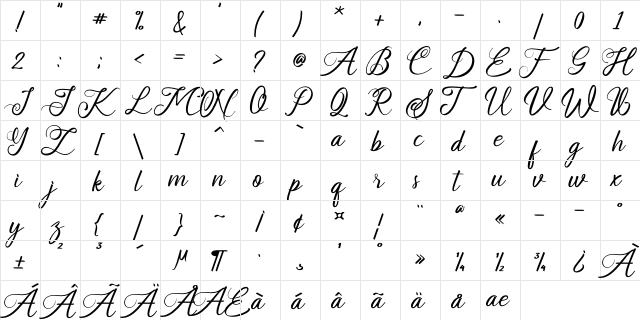 ! " # % & ' ( ) * + , - . / 0 1
2 : ; < = > ? @ A B C D E F G H
I J K L M N O P Q R S T U V W X
Y Z [ \ ] ^ _ ` a b c d e f g h
i j k l m n o p q r s t u v w x
y z { | } ~ ¡ ¢ ¤ ¦ ¨ ª « - ¯ °
± ² ³ ´ µ ¶ · ¸ ¹ º » ¼ ½ ¾ ¿ À
Á Â Ã Ä Å Æ à á â ã ä å æ